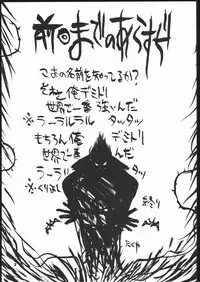 前回までのあらすじ
この名前を知ってるか?
それと俺デミトリ
世界で一番強いんだ
※ラーラルラル タッタッ
もちろん俺 デミトリ
世界で一番 んだ
ラーラ タッタッ
※くりかえし
終り
たくや